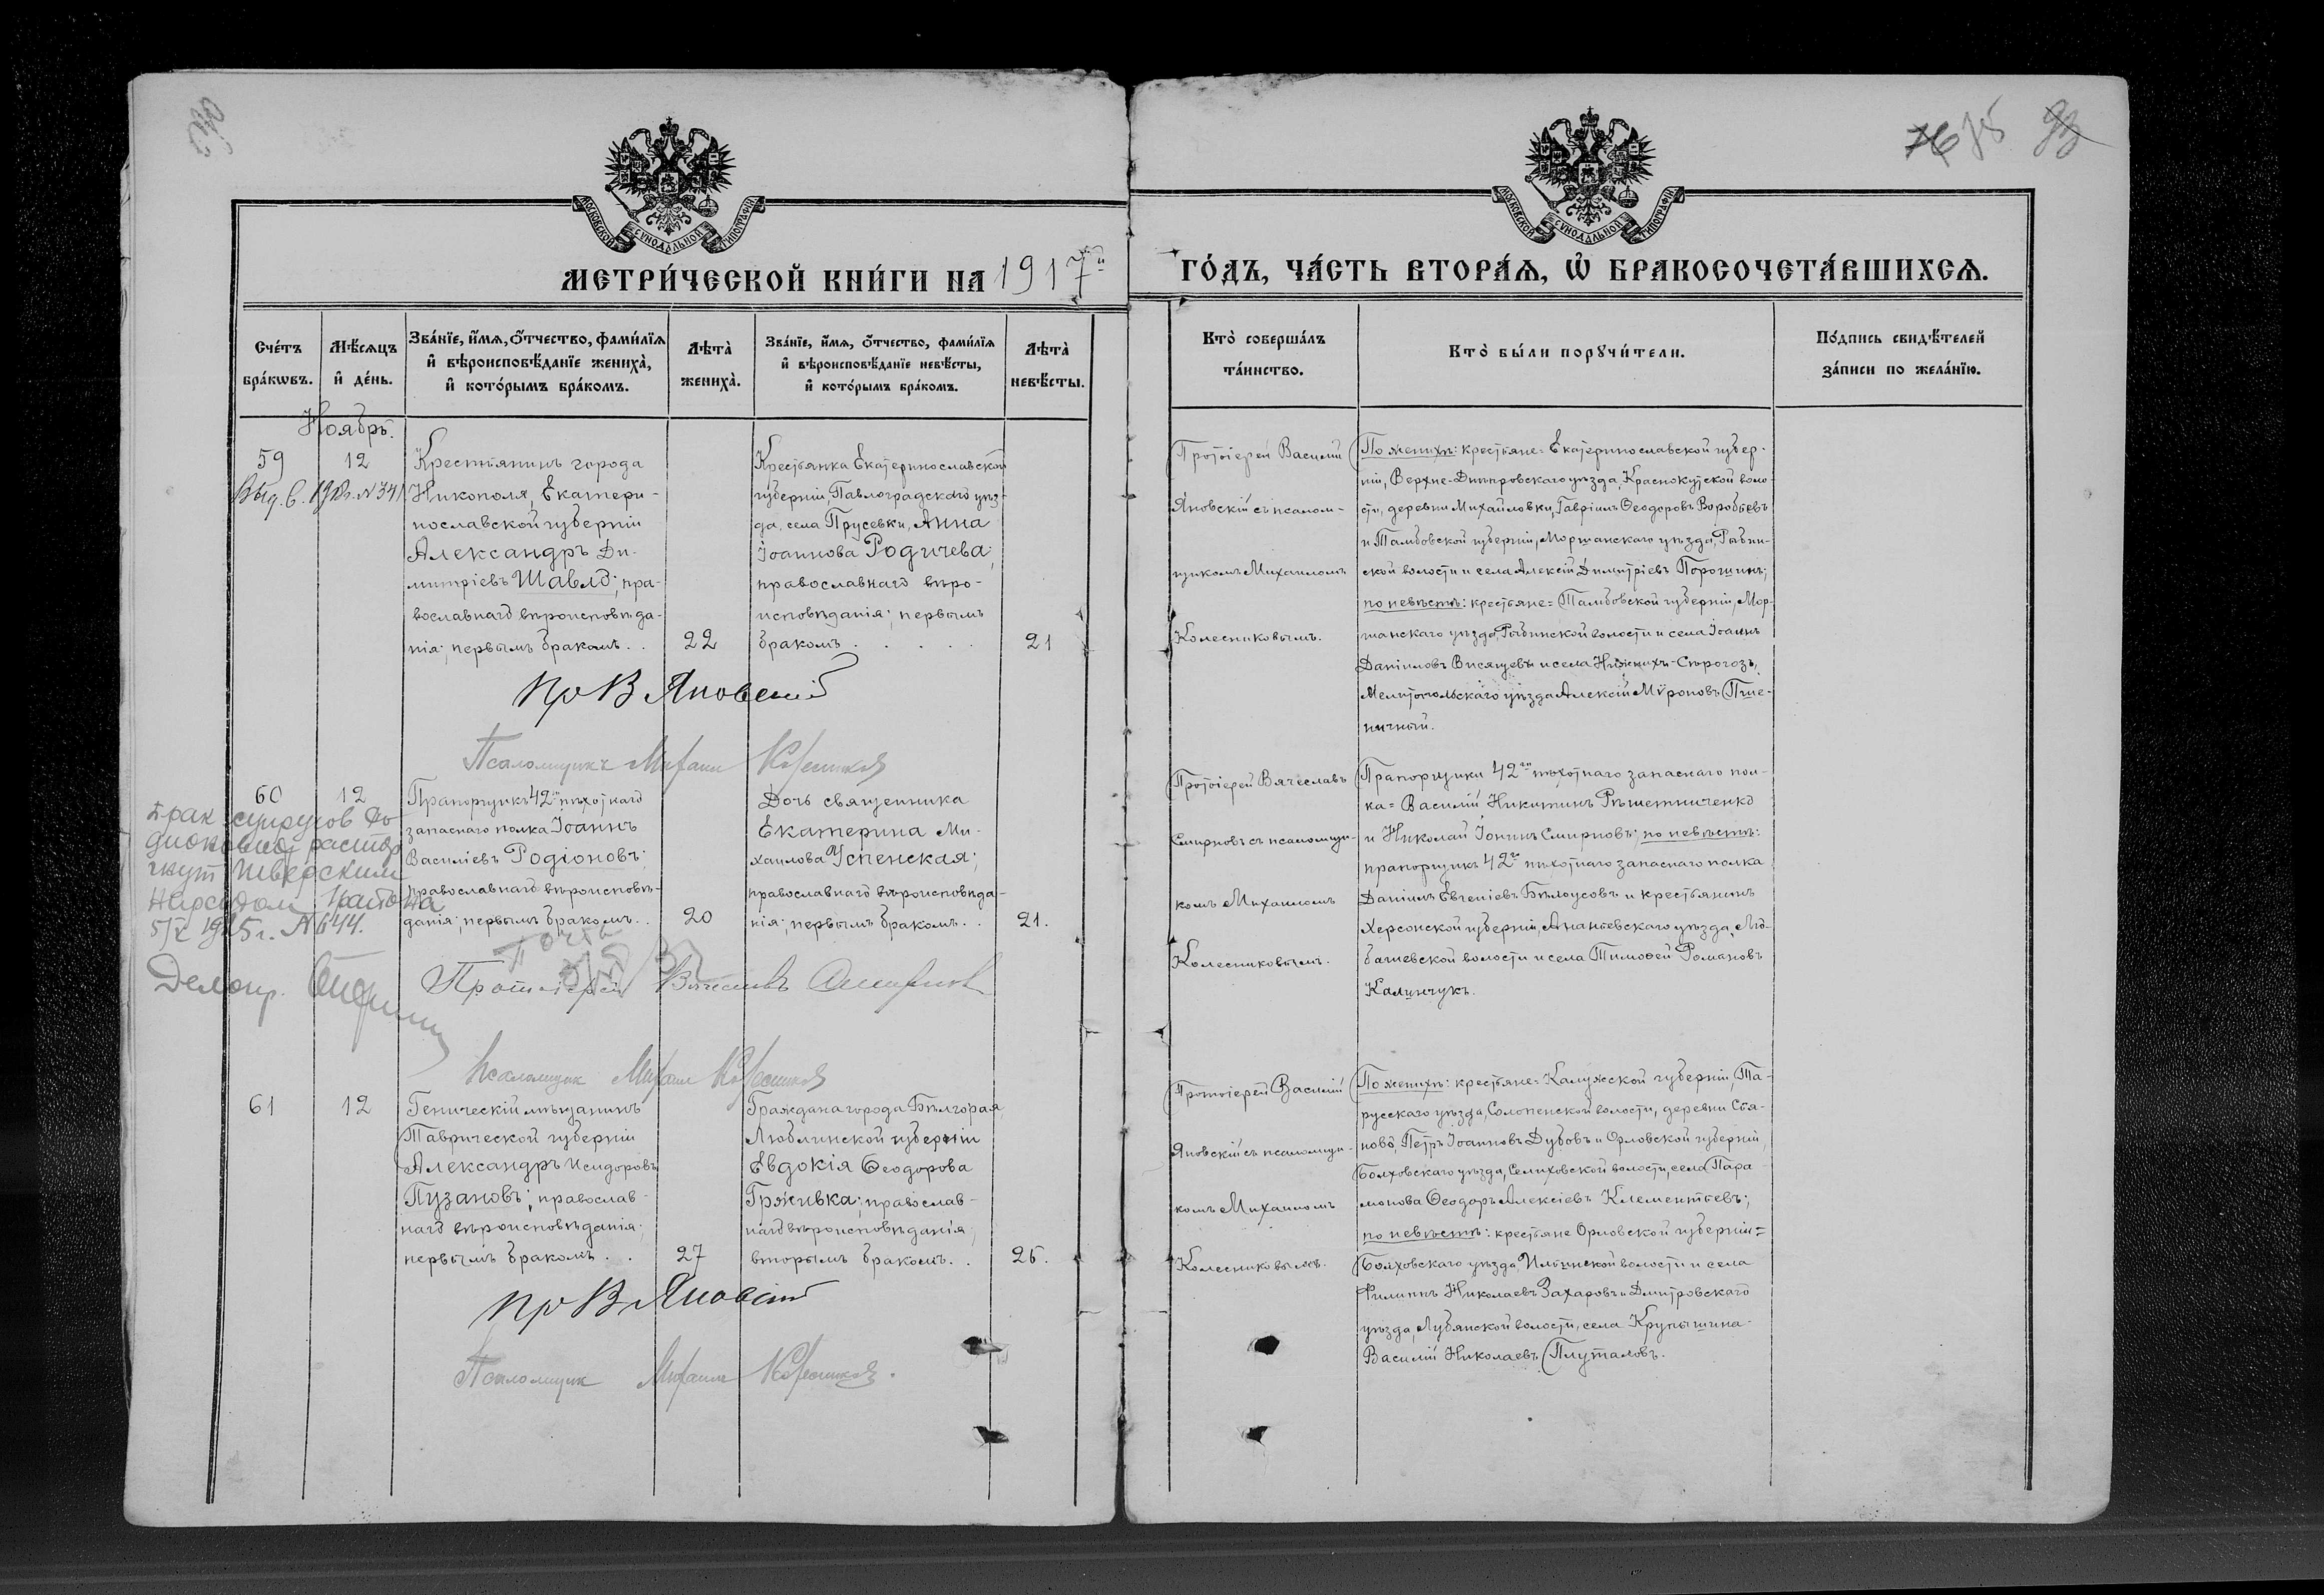 76 75 93
МОСКОВСКОЙ СѴНОДАЛЬНОЙ ТИПОГРАФІИ
МОСКОВСКОЙ СѴНОДАЛЬНОЙ ТИПОГРАФІИ
МЕТРИ́ЧЕСКОЙ КНИ́ГИ НА 1917й
ГО́ДЪ, ЧА́СТЬ ВТОРА́Ѧ, Ѽ БРАКОСОЧЕТА́ВШИХСѦ.
Сче́тъ
бра́кѡвъ.
Мѣ́сяцъ
и҆ де́нь.
Зва́нїе, и҆́мѧ, ѻ҆́тчество, фами́лїѧ
и҆ вѣроисповѣ́данїе жениха̀,
и҆ кото́рымъ бра́комъ.
Лѣта̀
жениха̀.
Зва́нїе, и҆́мѧ, ѻ҆́тчество, фами́лїѧ
и҆ вѣроисповѣ́данїе невѣ́сты,
и҆ кото́рымъ бра́комъ.
Лѣта̀
невѣ́сты.
Кто̀ соверша́лъ
та́инство.
Кто̀ бы́ли порꙋчи́тели.
По́дпись свидѣ́телей
за́писи по жела́нїю.
Ноябрь.
59
12
Крестьянинъ города
Никополя, Екатери-
нославской губерніи
Александръ Ди-
митріевъ Шавло; пра-
вославнаго вѣроисповѣда-
нія; первымъ бракомъ..
22
Крестьянка Екатеринославской
губерніи, Павлоградскаго уѣз-
да, села Прусевки, Анна
Іоаннова Родичева;
православнаго вѣро-
исповѣданія; первымъ
бракомъ.....
21
Протоіерей Василий
Яновскій съ псалом-
щикомъ Михаиломъ
Колесниковымъ.
По женихѣ: крестьяне= Екатеринославской губер-
ніи, Верхне-Днѣпровскаго уѣзда, Краснокутской воло-
сти, деревни Михайловки, Гавріилъ Ѳеодоровъ Воробьевъ
и Тамбовской губерніи, Моршанскаго уѣзда, Рыбин-
ской волости и села Алексій Димитріевъ Порошинъ;
по невѣстѣ: крестьяне= Тамбовской губерніи, Мор-
шанскаго уѣзда, Рыбинской волости и села Іоаннъ
Даніиловъ Висящевъ и села Нижнихъ-Сѣрогозъ,
Мелитопольскаго уѣзда Алексій Мѵроновъ Пше-
ничный.
Пр В Яновскій
Псаломщикъ Михаил Колесников
60
12
Прапорщикъ 42го пѣхотнаго
запаснаго полка Іоаннъ
Василіевъ Родіоновъ;
православнаго вѣроисповѣ-
данія; первымъ бракомъ..
20
Дочь священника
Екатерина Ми-
хаилова Успенская;
православнаго вѣроисповѣда-
нія; первымъ бракомъ..
21.
Протоіерей Вячеславъ
Смирновъ съ псаломщи-
комъ Михаиломъ
Колесниковымъ.
Прапорщики 42го пѣхотнаго запаснаго пол-
ка= Василій Никитинъ Рѣшетниченко
и Николай Іонинъ Смирновъ; по невѣстѣ:
прапорщикъ 42го пѣхотнаго запаснаго полка
Даніилъ Евгеніевъ Бѣлоусовъ и крестьянинъ
Херсонской губерніи, Ананьевскаго уѣзда, Лю-
башевской волости и села Тимоѳей Романовъ
Калинчукъ.
брак супругов Ро-
дионовых растор
гнут
1925 г. № 644.
Делопр.
Протоіерей Вячеславъ Смирнов
Псаломщик Михаил Колесников
61
12
Геническій мѣщанинъ
Таврической губерніи
Александръ Исидоровъ
Пузановъ; православ-
наго вѣроисповѣданія;
первымъ бракомъ..
27
Граждана города Бѣлгорая
Люблинской губерніи
Евдокія Ѳеодорова
Грживка; православ-
наго вѣроисповѣданія;
вторымъ бракомъ..
25.
Протоіерей Василий
Яновскій съ псаломщи-
комъ Михаиломъ
Колесниковымъ.
По женихѣ: крестьяне= Калужской губерніи, Та-
русскаго уѣзда, Солопенской волости, деревни Стя-
ново, Петръ Іоанновъ Дубовъ и Орловской губерніи,
Болховскаго уѣзда, Селиховской волости, села Пара-
монова Ѳеодоръ Алексіевъ Клементьевъ;
по невѣстѣ: крестьяне Орловской губерніи=
Болховскаго уѣзда, Ильинской волости и села
Филиппъ Николаевъ Захаровъ и Дмитровскаго
уѣзда, Лубянской волости, села Крупышина-
Василій Николаевъ Плуталовъ.
Пр В Яновскій
Псаломщик Михаил Колесников.